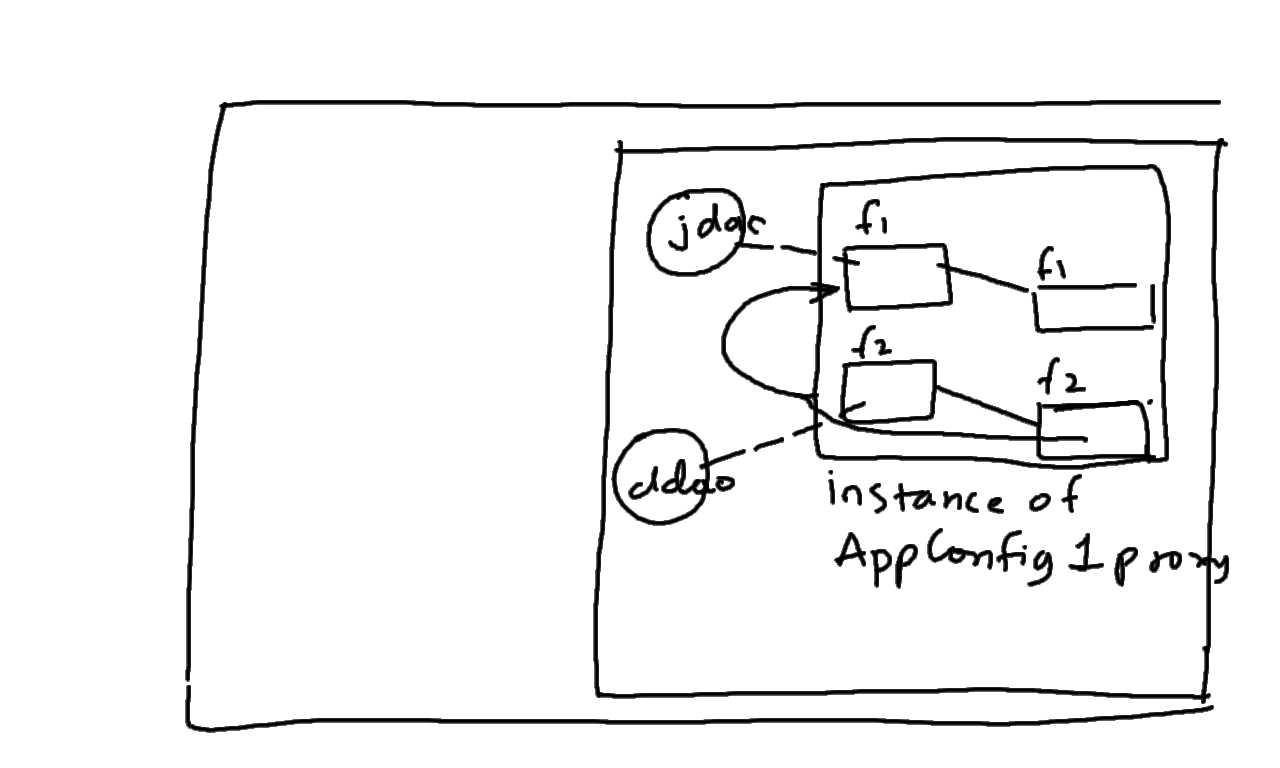 jdac
f1
f1
f2
f2
ddao
instance of
AppConfig1 proxy